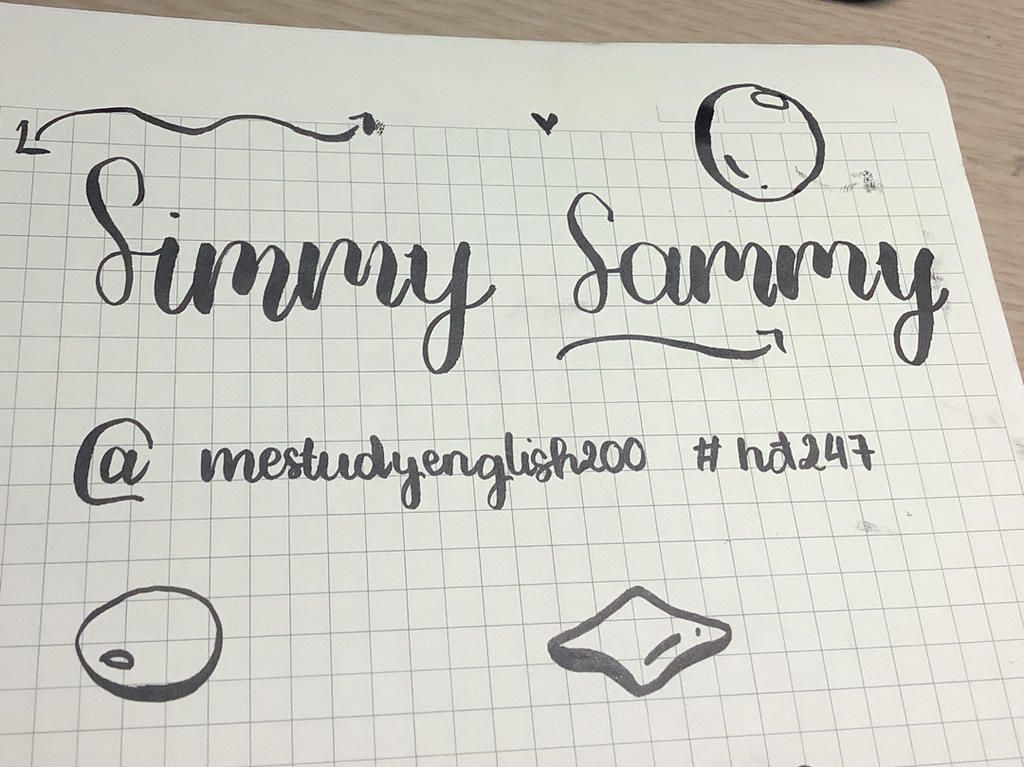 Simmy Sammy
@ mestudyenglish200 #hd247